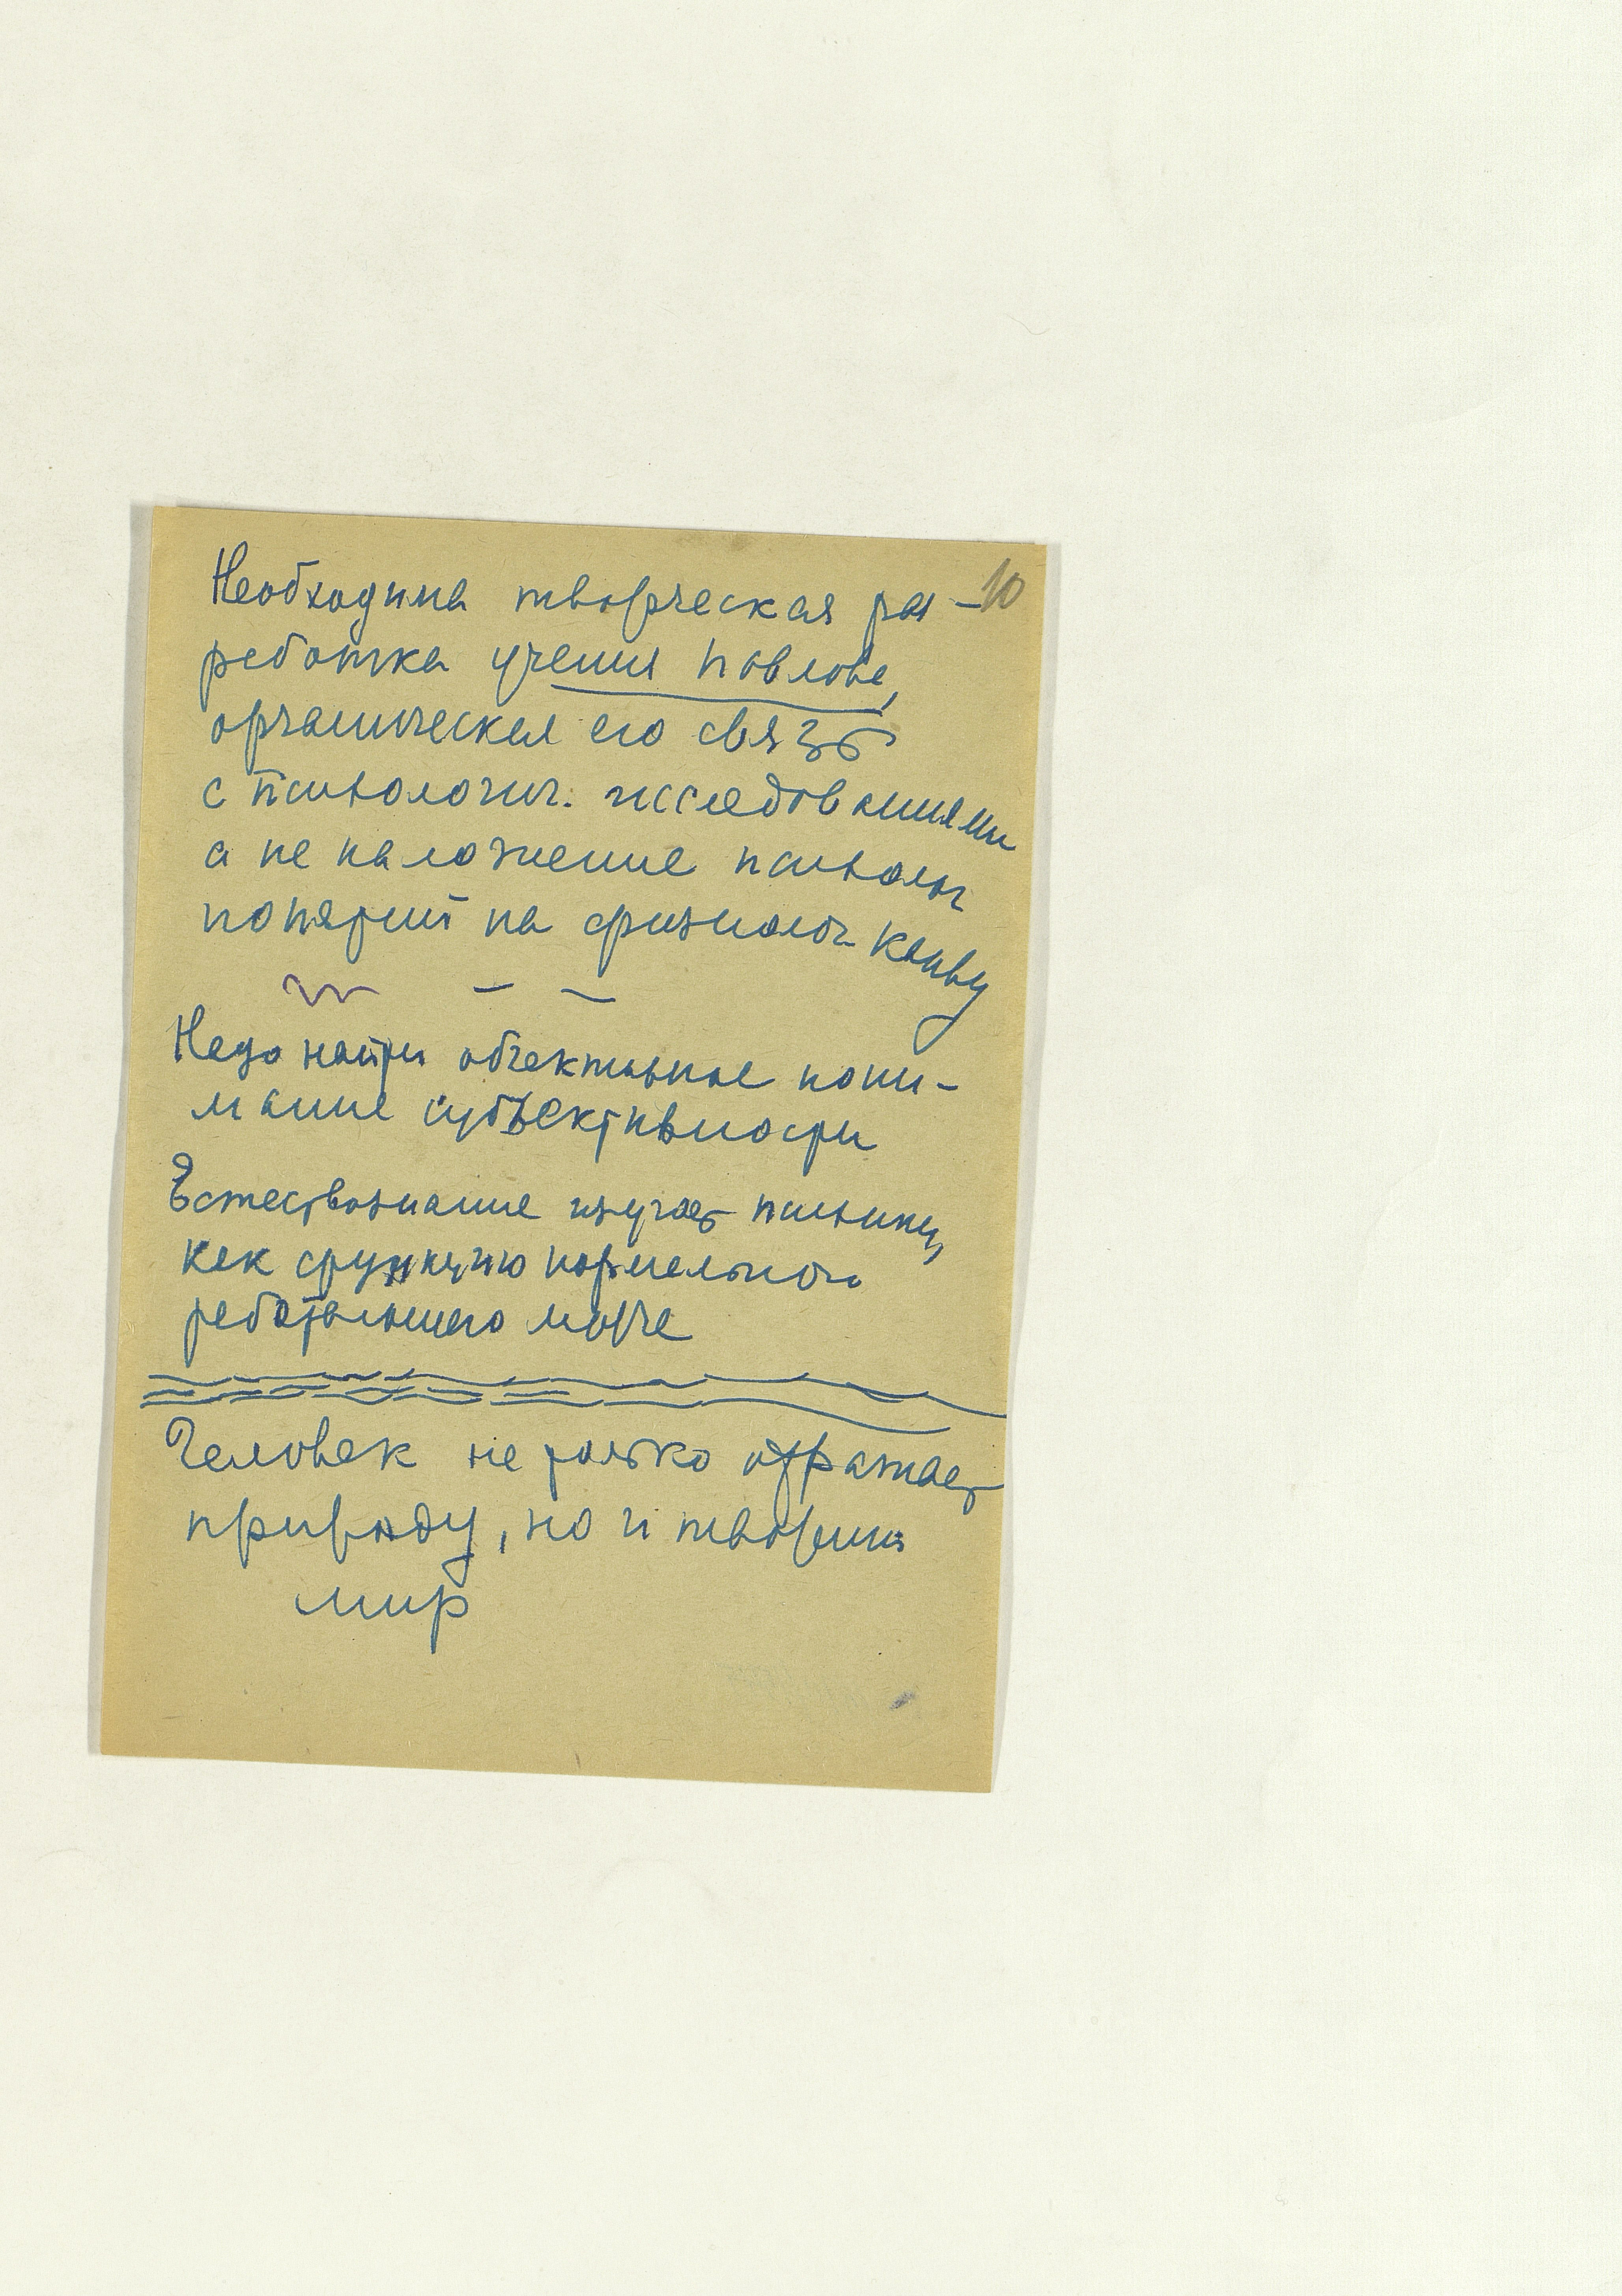 Необходима творческая раз- 10
работка учения Павлова,
органическая его связь
с психологич. исследованиями
а не наложение психолог
понятий на физиолог канву
Надо найти объективное пони-
мание субъективности
Естествознание изучает психику,
как функцию нормально
работающего мозга
Человек не только отражает
природу, но и творит
мир